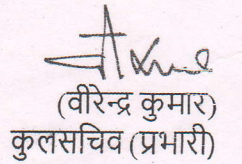 (वीरेन्द्र कुमार)
कुलसचिव (प्रभारी)